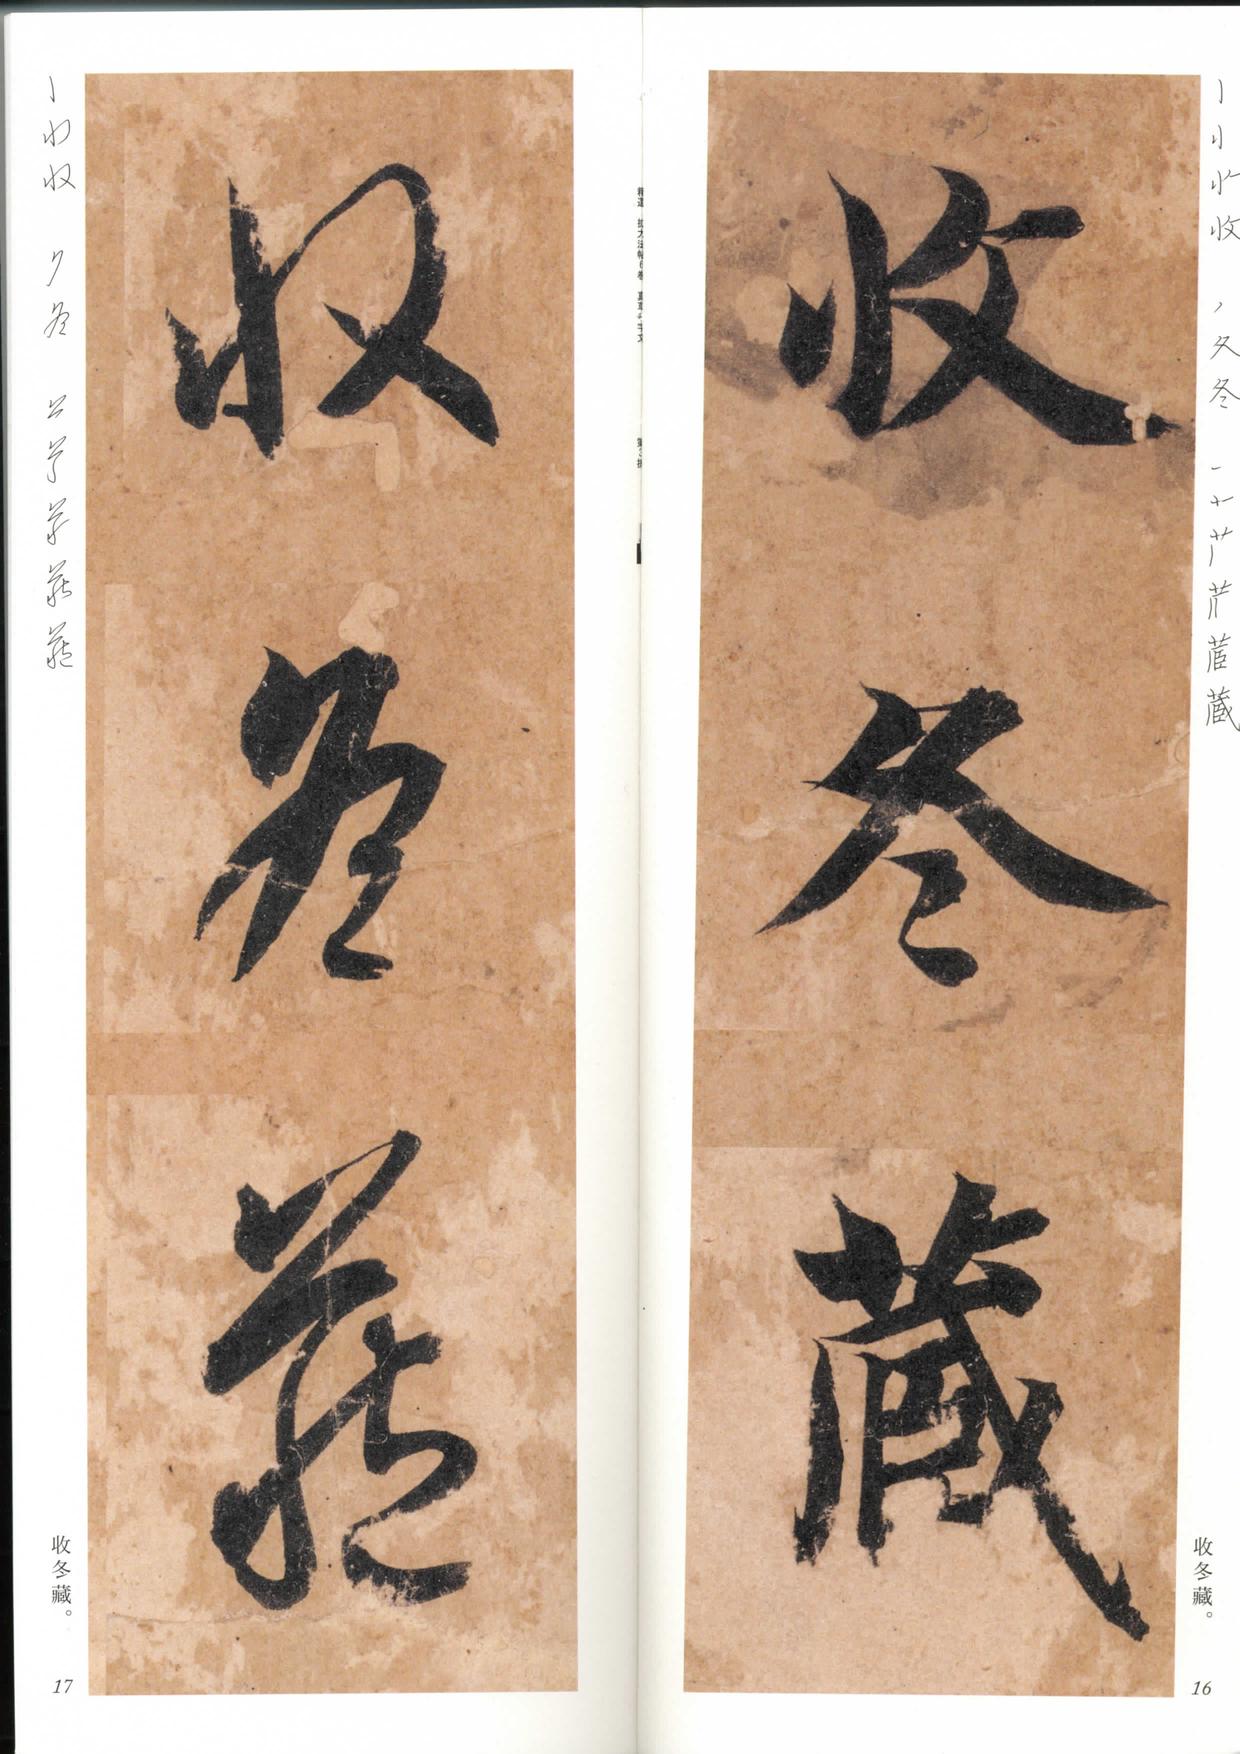 收
冬
藏
收冬藏。
16
收
冬
藏
收冬藏。
17